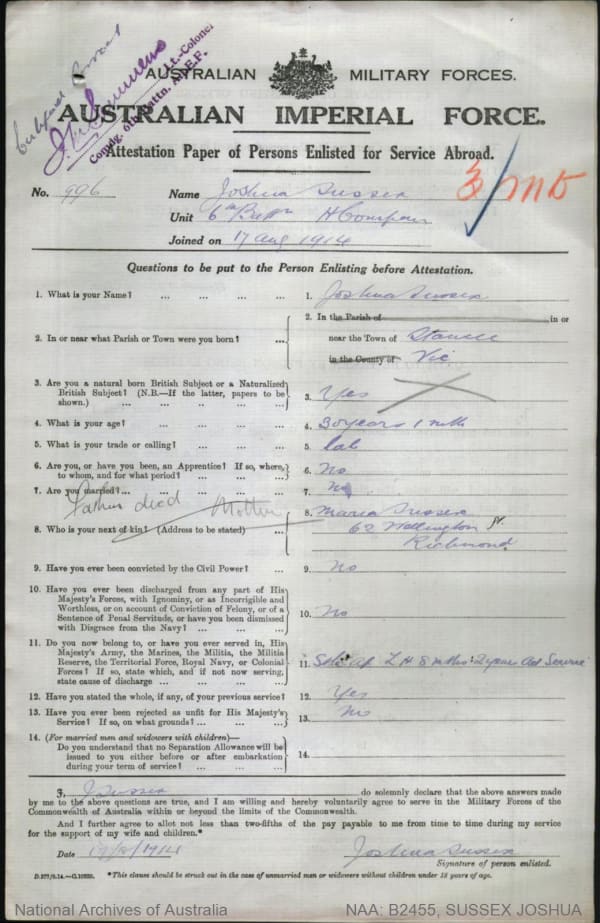 Lt.-Colonel
Comdg. 6th Battn. A.I.F.
AUSTRALIAN MILITARY FORCES.
AUSTRALIAN IMPERIAL FORCE.
Attestation Paper of Persons Enlisted for Service Abroad.
No. 996 Name Joshua Sussex
3 MD
Unit 6th Battn H Company
Joined on 17 Aug 1914
Questions to be put to the Person Enlisting before Attestation.
1. What is your Name? ... ... ... ... 1. Joshua Sussex
2. In or near what Parish or Town were you born? ... 2. In the Parish of in or
near the Town of Stawell
in the County of Vic
3. Are you a natural born British Subject or a Naturalized
British Subject? (N.B.—If the latter, papers to be
shown.) ... ... ... ... ... 3. Yes
4. What is your age? ... ... ... ... 4. 30 years 1 mth
5. What is your trade or calling? ... ... ... 5. lab
6. Are you, or have you been, an Apprentice? If so, where,
to whom, and for what period? ... ... ... 6. No
7. Are you married? ... ... ... ... 7. No
Father died Mother
8. Who is your next of kin? (Address to be stated) ... 8. Maria Sussex
62 Wellington St.
Richmond.
9. Have you ever been convicted by the Civil Power? ... 9. No
10. Have you ever been discharged from any part of His
Majesty's Forces, with Ignominy, or as Incorrigible and
Worthless, or on account of Conviction of Felony, or of a
Sentence of Penal Servitude, or have you been dismissed
with Disgrace from the Navy? ... ... ... 10. No
11. Do you now belong to, or have you ever served in, His
Majesty's Army, the Marines, the Militia, the Militia
Reserve, the Territorial Force, Royal Navy, or Colonial
Forces? If so, state which, and if not now serving,
state cause of discharge ... ... ... ... 11. Sth Af L H 8 mths 2 years Act Service
12. Have you stated the whole, if any, of your previous service? 12. Yes
13. Have you ever been rejected as unfit for His Majesty's
Service? If so, on what grounds? ... ... ... 13. No
14. (For married men and widowers with children)—
Do you understand that no Separation Allowance will be
issued to you either before or after embarkation
during your term of service? ... ... ... 14.
I, J Sussex do solemnly declare that the above answers made
by me to the above questions are true, and I am willing and hereby voluntarily agree to serve in the Military Forces of the
Commonwealth of Australia within or beyond the limits of the Commonwealth.
And I further agree to allot not less than two-fifths of the pay payable to me from time to time during my service
for the support of my wife and children.*
Date 19/8/1914 Joshua Sussex
Signature of person enlisted.
D.377/9.14.—C.10930. *This clause should be struck out in the case of unmarried men or widowers without children under 18 years of age.
National Archives of Australia NAA: B2455, SUSSEX JOSHUA